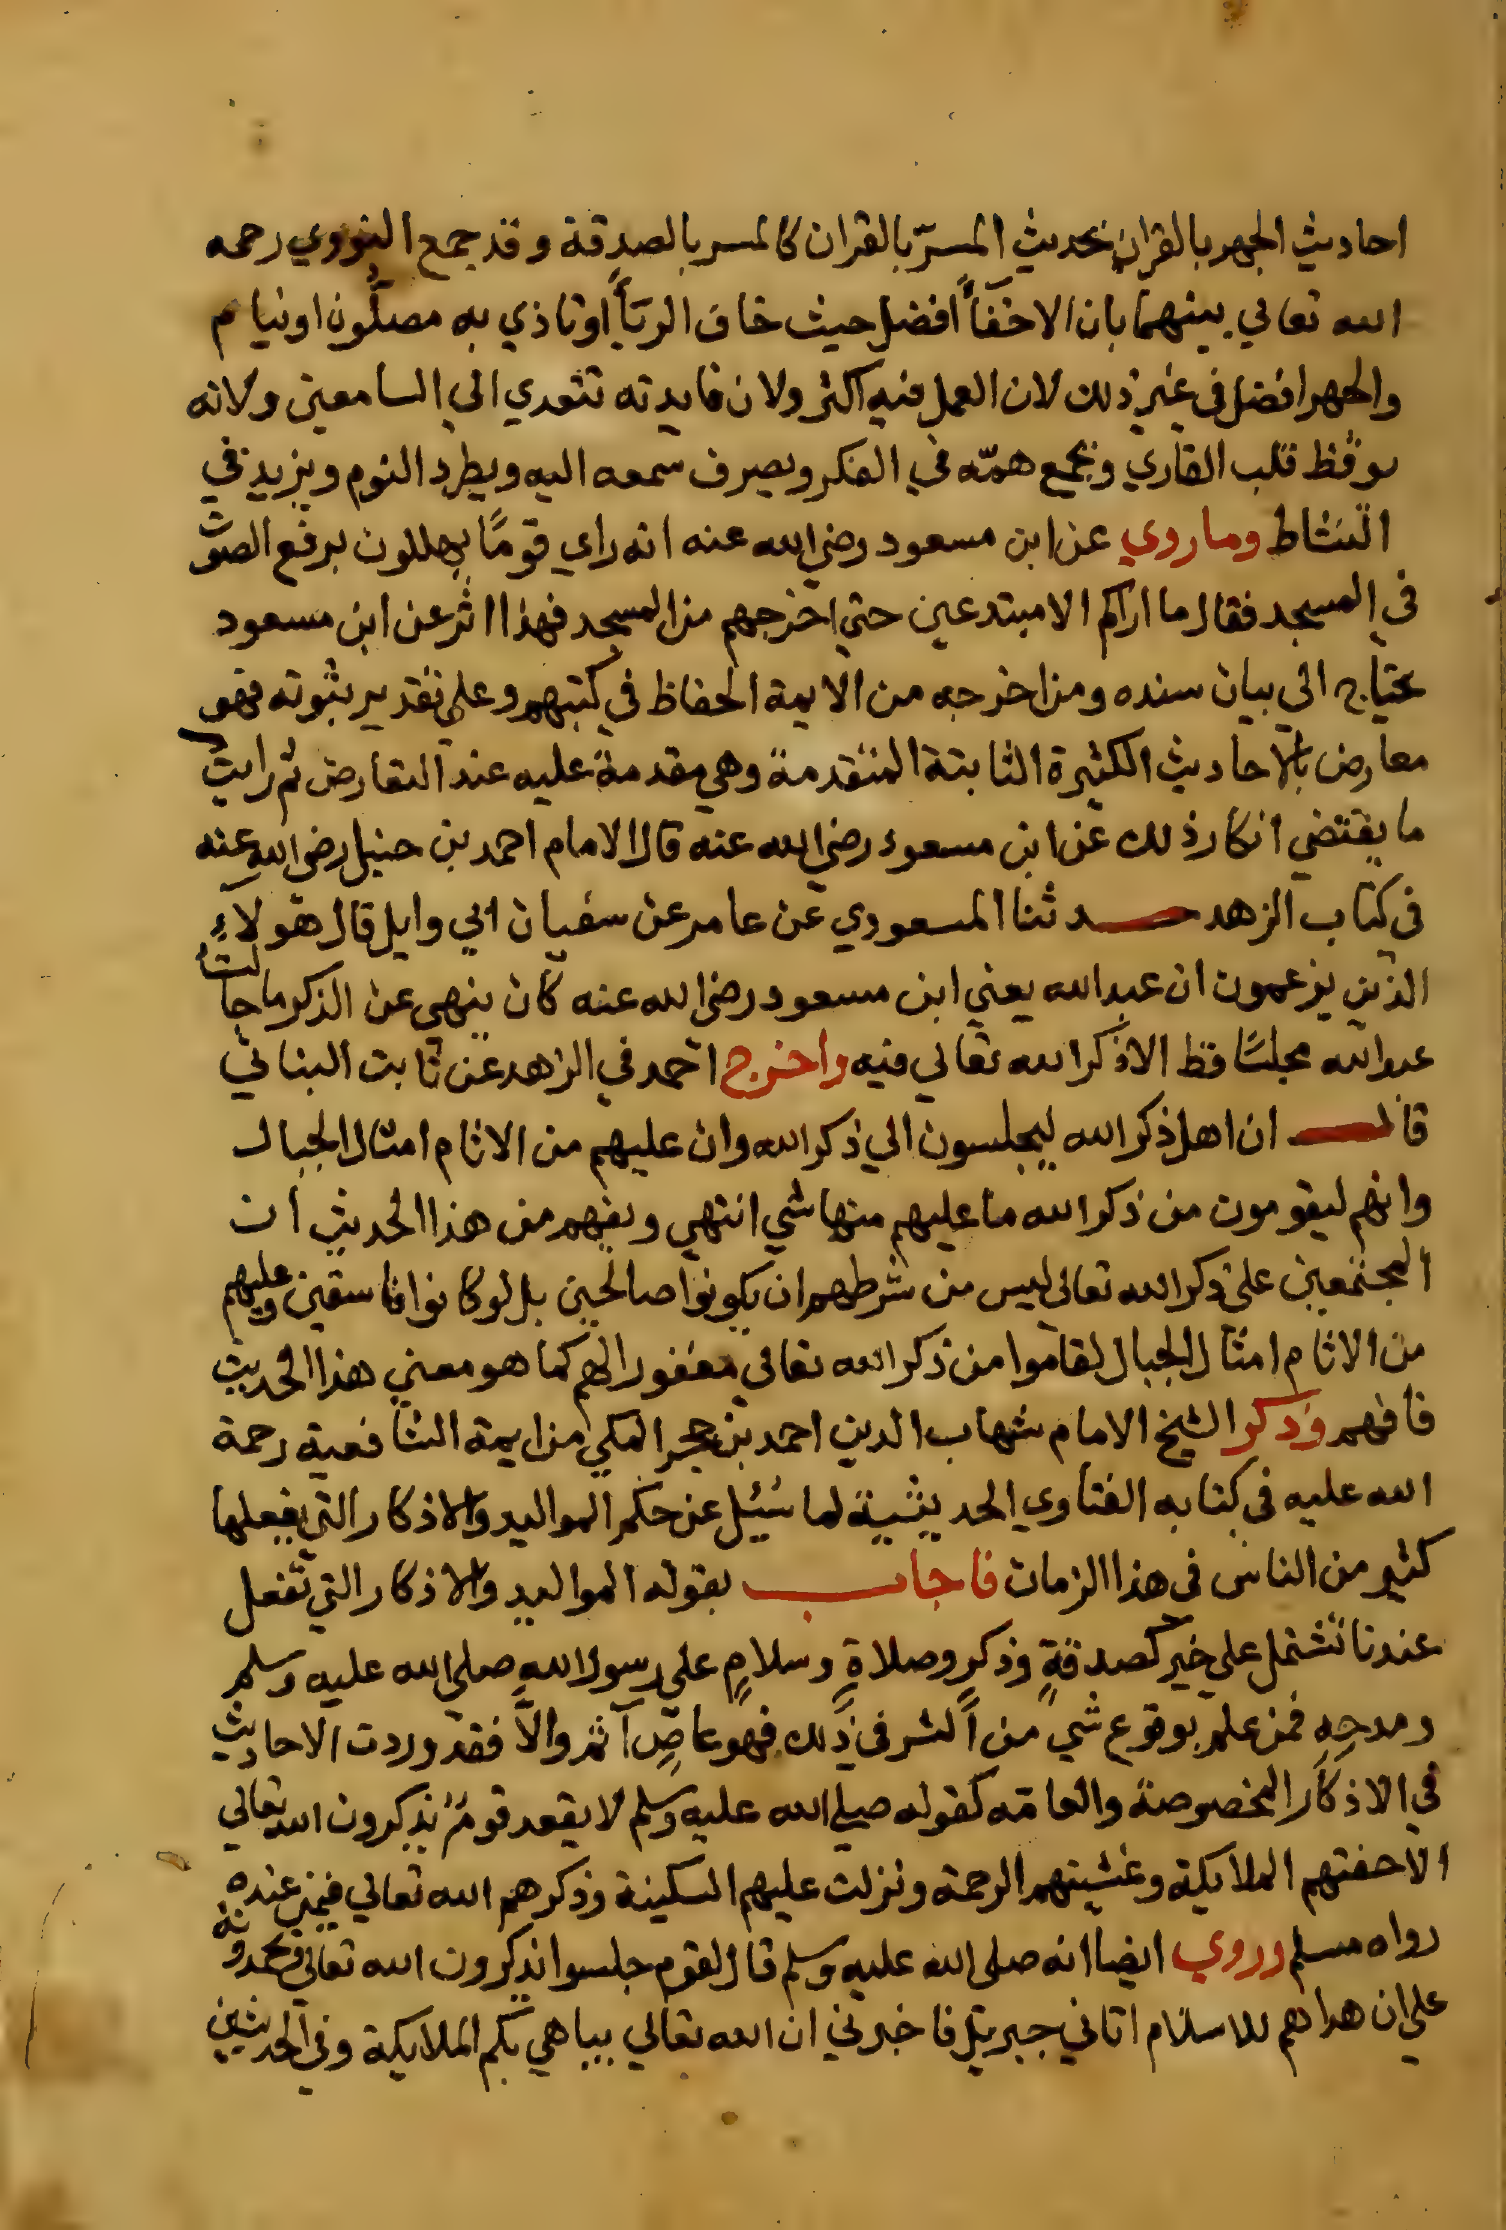 احاديث الجهر بالقران بحديث المسرّ بالقران كالمسر بالصدقة وقد جمع النووي رحمه
الله تعالي بينهما بان الاخفاً افضل حيث خاف الرياً اوتاذي به مصلّون اونيام
والجهر افضل في غير ذلك لان العمل فيه اكثر ولان فايدته تتعدي الي السامعين ولانه
يوقظ قلب القاري ويجمع همّه في الفكر ويصرف سمعه اليه ويطرد النوم ويزيد في
النشاط وماروي عن ابن مسعود رضي الله عنه انه راي قومًا يهللون برفع الصوت
في المسجد فقال ما اراكم الا مبتدعين حتي اخرجهم من المسجد فهذا اثر عن ابن مسعود
يحتاج الي بيان سنده ومن اخرجه من الايمة الحفاظ في كتبهم وعلي تقدير ثبوته فهو
معارض بالاحاديث الكثيرة الثابتة المتقدمة وهي مقدمة عليه عند التعارض ثم رايت
ما يقتضي انكار ذلك عن ابن مسعود رضي الله عنه قال الامام احمد بن حنبل رضي الله عنه
في كتاب الزهد حدثنا المسعودي عن عامر عن سفيان ابي وايل قال هولاءِ
الذين يزعمون ان عبد الله يعني ابن مسعود رضي الله عنه كان ينهي عن الذكر ما جالست
عبد الله مجلسًا قط الا ذكر الله تعالي فيه واخرج احمد في الزهد عن ثابت البناني
قال ان اهل ذكر الله ليجلسون الي ذكر الله وان عليهم من الاثام امثال الجبال
وانهم ليقومون من ذكر الله ما عليهم منها شي انتهي ويفهم من هذا الحديث ان
المجتمعين علي ذكر الله تعالي ليس من شرطهم ان يكونوا صالحين بل لو كانوا فاسقين وعليهم
من الاثام امثال الجبال لقاموا من ذكر الله تعالي مغفورا لهم كما هو معني هذا الحديث
فافهم وذكر الشيخ الامام شهاب الدين احمد بن حجر المكي من ايمة الشافعية رحمة
الله عليه في كتابه الفتاوي الحديثية لما سُيُل عن حكم الموالد والاذكار التي يفعلها
كثير من الناس في هذا الزمان فاجاب بقوله الموالد والاذكار التي تفعل
عندنا تشتمل علي خير كصدقةٍ وذكرٍ وصلاةٍ وسلامٍ علي رسول الله صلي الله عليه وسلم
ومدحِهِ فمن علم بوقوع شي من الشر في ذلك فهو عاصٍ آثم والاّ فقد وردت الاحاديث
في الاذكار المخصوصة والعامه كقوله صلي الله عليه وسلم لا يقعد قومٌ يذكرون الله تعالي
الا حفتهم الملايكة وغشيتهم الرحمة ونزلت عليهم السكينة وذكرهم الله تعالي فيمن عنده
رواه مسلم وروي ايضا انه صلي الله عليه وسلم قال لقوم جلسوا يذكرون الله تعالي ويحمدونه
علي ان هداهم للاسلام اتاني جبريل فاخبرني ان الله تعالي يباهي بكم الملايكة وفي الحديثين